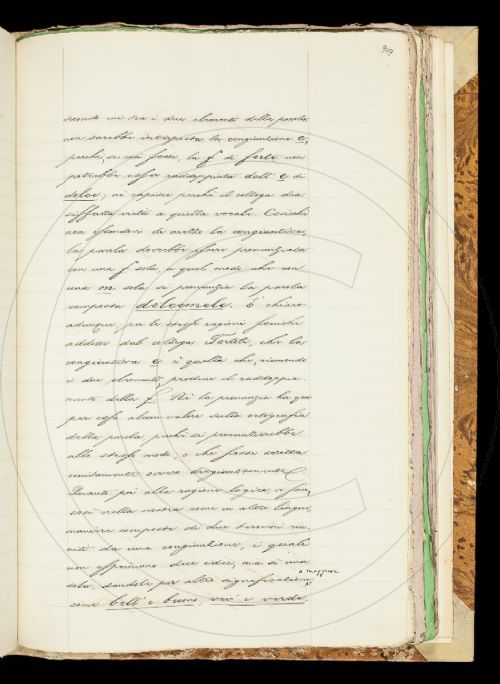 909
secondo cui tra i due elementi della parola
non sarebbe interposta la congiunzione e;
perché, se così fosse, la f di forte non
potrebbe esser raddoppiata dall' e di
dolce, né capisce perché il collega dia
siffatta virtù a quella vocale. Cosicché
non essendovi di mezzo la congiuntiva,
la parola dovrebbe essere pronunziata
con una f sola, a quel modo che con
una m sola si pronunzia la parola
composta dolcemele. È chiaro
adunque, per le stesse ragioni foniche
addotte dal collega Tortoli, che la
congiuntiva e è quella che, riunendo
i due elementi, produce il raddoppia
mento della f. Né la pronunzia ha qui
per esso alcun valore sulla ortografia
della parola perché si pronunzierebbe
allo stesso modo, o che fosse scritta
unitamente ovvero disgiuntamente.
Quanto poi alla ragione logica, vi son,
così nella nostra come in altre lingue,
maniere composte di due termini riu
niti da una congiunzione, i quali
non esprimono due idee, ma sì una
sola, dandole per altro significazione
maggiore
come bell' e buono, vivo e verde,